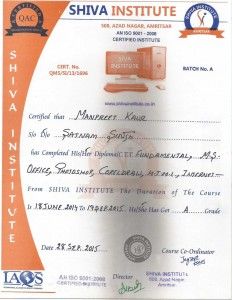 SHIVA INSTITUTE
508, AZAD NAGAR, AMRITSAR
AN ISO 9001 - 2008
CERTIFIED INSTITUTE
QAC
SHIVA INSTITUTE
AMRITSAR
CERTIFICATE NO.
QMS/SI/13/1696
SHIVA
INSTITUTE
BATCH No. A
www.shivainstitute.co.in
SHIVA INSTITUTE
Certified that MANPREET KAUR
S/o D/o SATNAM SINGH
has Completed His/Her Diploma I.T. FUNDAMENTAL, M.S-
OFFICE, PHOTOSHOP, CORELDRAW, H.T.M.L, INTERNET
From SHIVA INSTITUTE The Duration of The Course
is 18 JUNE 2014 To 19 SEP. 2015 He/She Has Got A Grade
Date 28 SEP. 2015
Course Co-Ordinator
IAQS
AN ISO 9001-2008
CERTIFIED INSTITUTE
Director
SHIVA INSTITUTE
508, Azad Nagar,
Amritsar